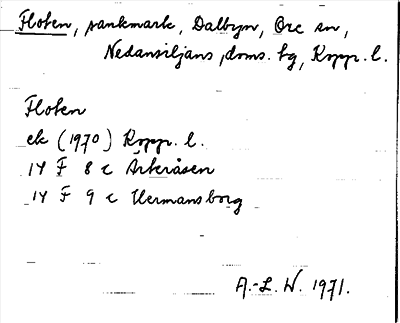 Floten, sankmark, Dalbyn, Ore sn,
Nedansiljans doms. hg, Kopp. l.
Floten
ek (1970) Kopp. l.
14 F 8 c Arteråsen
14 F 9 c Hermansborg
A.-L. W. 1971.